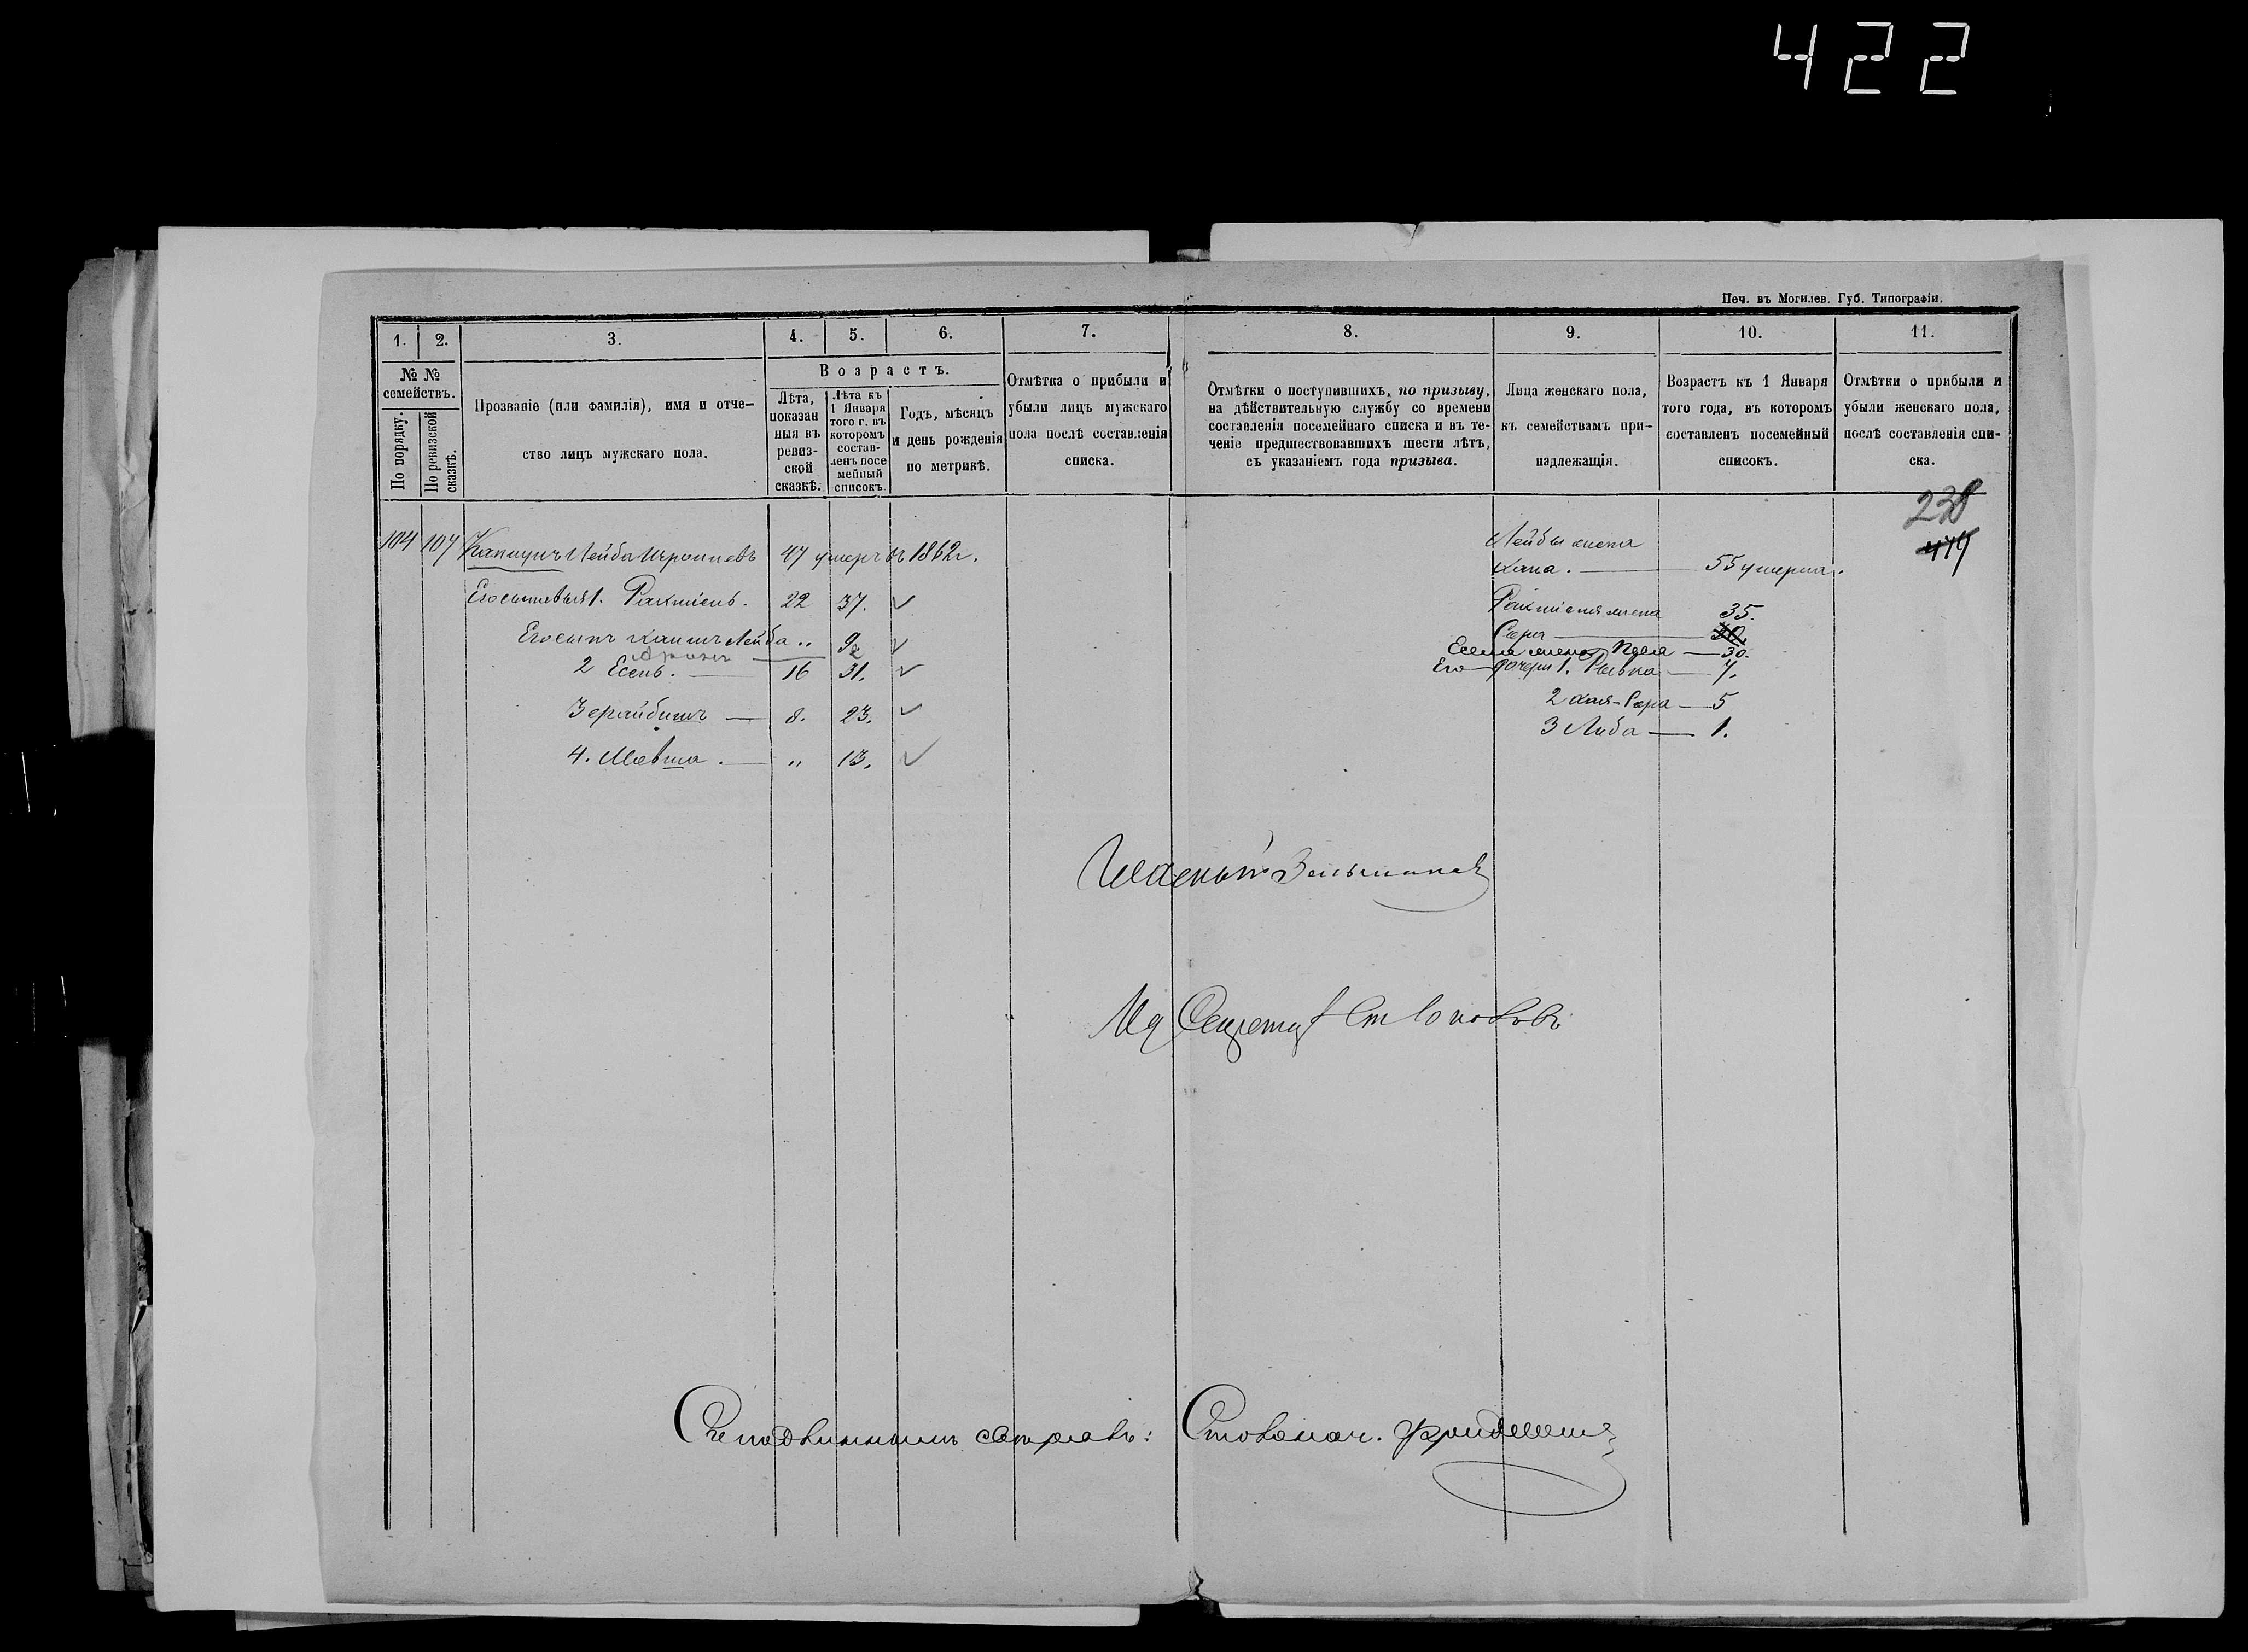 422
Печ. въ Могилев. Губ. Типографіи.
1. 2. 3. 4. 5. 6. 7. 8. 9. 10. 11.
№ № семействъ.
По порядку.
По ревизской сказкѣ.
Прозваніе (или фамилія), имя и отче-
ство лицъ мужскаго пола.
Возрастъ.
Лѣта,
показан
ныя въ
ревиз-
ской
сказкѣ.
Лѣта къ
1 Января
того г. въ
которомъ
состав-
ленъ посе
мейный
списокъ.
Годъ, мѣсяцъ
и день рожденія
по метрикѣ.
Отмѣтка о прибыли и
убыли лицъ мужскаго
пола послѣ составленія
списка.
Отмѣтки о поступившихъ, по призыву,
на дѣйствительную службу со времени
составленія посемейнаго списка и въ те-
ченіе предшествовавшихъ шести лѣтъ,
съ указаніемъ года призыва.
Лица женскаго пола,
къ семействамъ при-
надлежащія.
Возрастъ къ 1 Января
того года, въ которомъ
составленъ посемейный
списокъ.
Отмѣтки о прибыли и
убыли женскаго пола,
послѣ составленія спи-
ска.
238
104 107 Лейба 47 умеръ въ 1862 г.
Его сыновья 1. 22 37.
Его сынъ Лейба " 9
2 Есель. 16 31.
3 8. 23.
4. Мовша. " 13.
Лейбы жена
Хана. 55 умерла.
жена 35.
Сора
Еселя жена 30.
Его дочери 1. Рывка 7.
2 Хая-Сора 5
3 Либа 1.
Съ подлиннымъ вѣрно: Столонач.